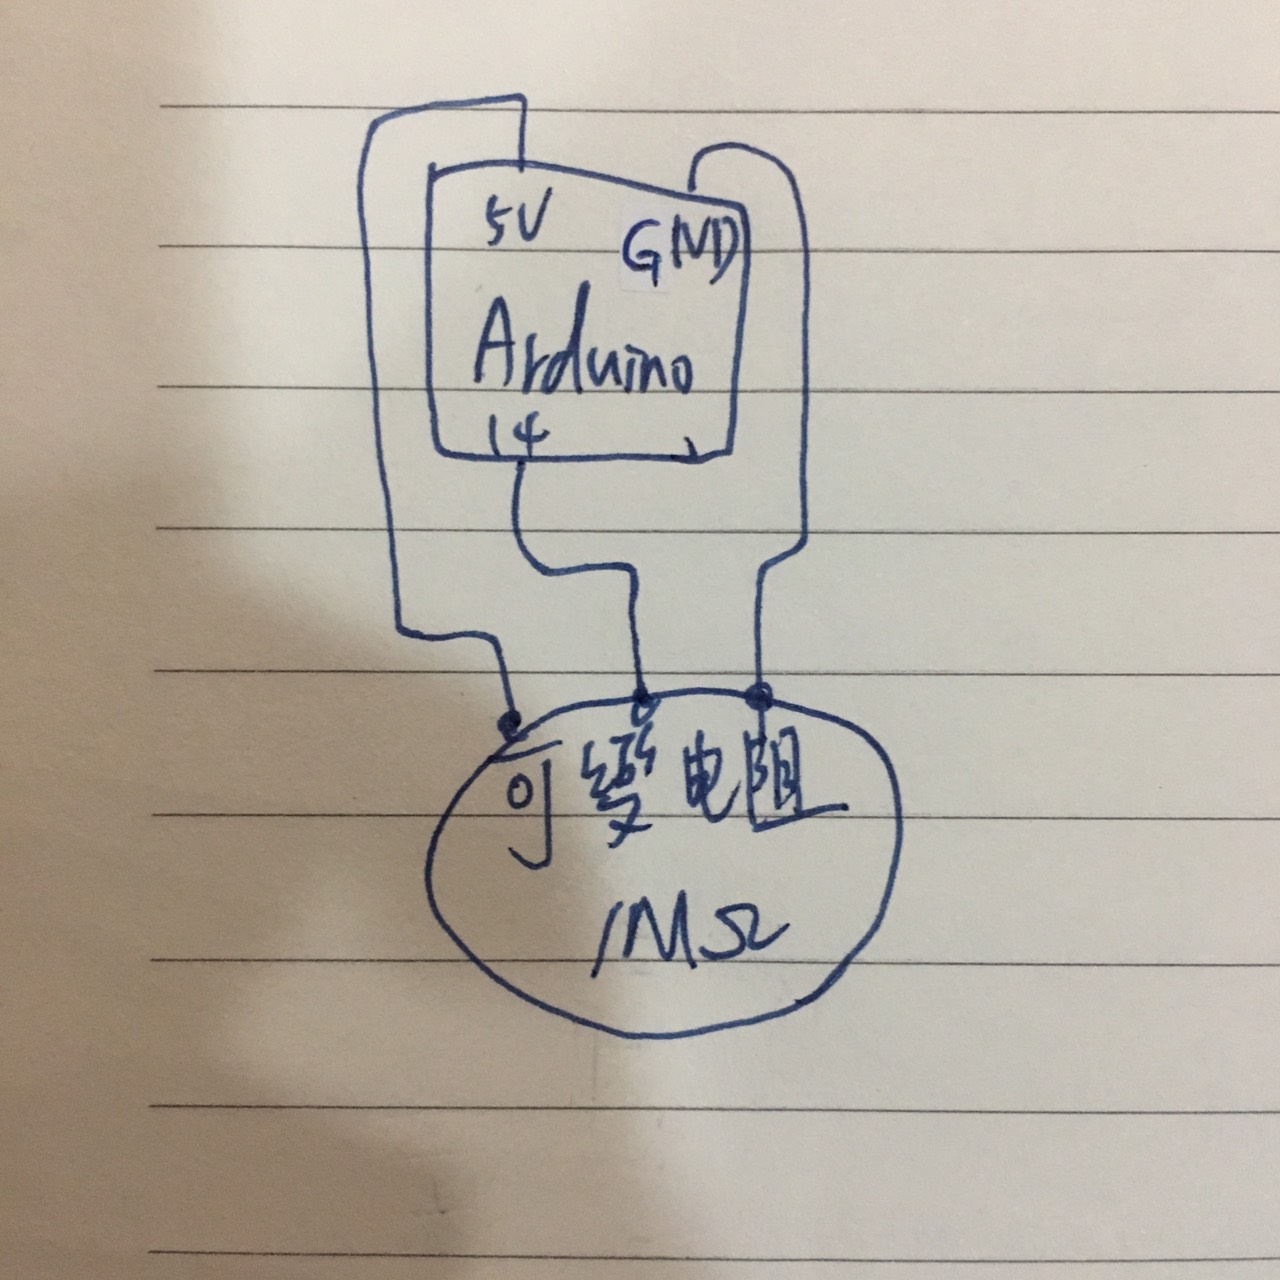 5V
GND
Arduino
14
可變电阻
1MΩ